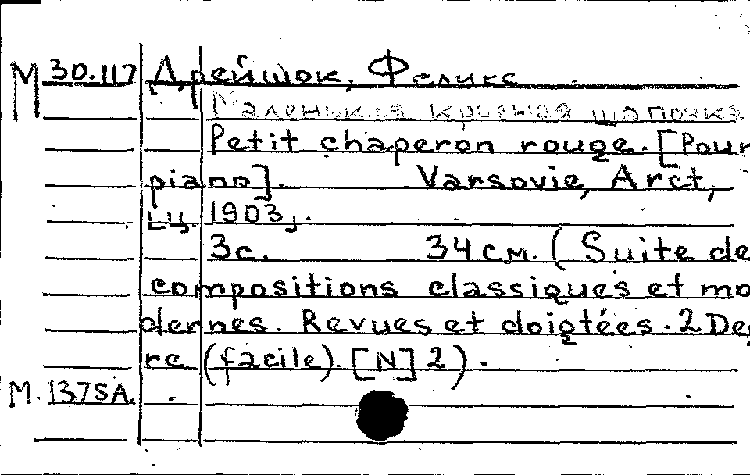 М 30.117 Дрейшок, Феликс
Маленькая красная шапочка
Petit chaperon rouge. [Pour
piano]. Varsovie, Arct,
ц. 1903,.
3с. 34см. (Suite de
compositions classiques et mo
dernes. Revues et doigtées. 2 De
re (facile) [N] 2).
М. 1375А.